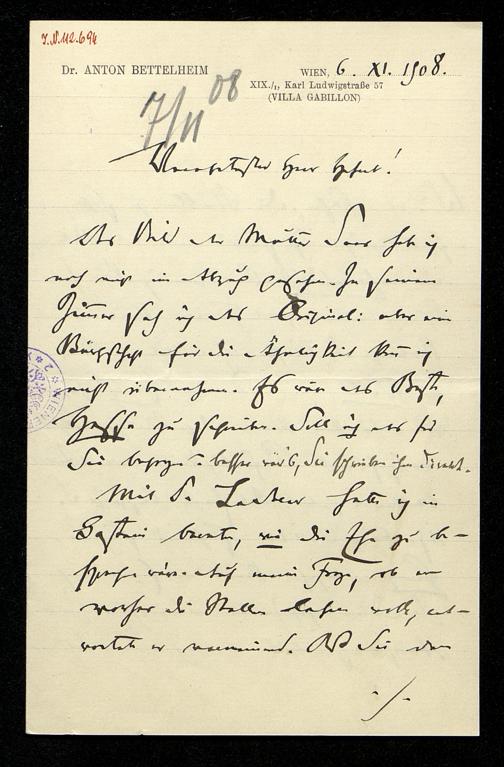 J.N. 112.694
Dr. ANTON BETTELHEIM
WIEN, 6. XI. 1908.
XIX./1, Karl Ludwigstraße 57
(VILLA GABILLON)
7/11 08
Verehrtester Herr Hofrat!
Das Bild der Mutter Saar hab ich
noch nicht im Abzug gesehn. In seinem
Zimmer sah ich das Original: aber eine
Bürgschaft für die Ähnlichkeit kann ich
nicht übernehmen. Es wäre das Beste,
zu schreiben. Soll ich das für
Sie besorgen? besser wär's, Sie schreiben ihm direkt.
Mit Dr. hatte ich in
Gastein, wie die zu be-
sprechen wäre. Auf meine Frage, ob er
die Stellen will, ant-
wortete er verneinend. Sie
./.
WIENER